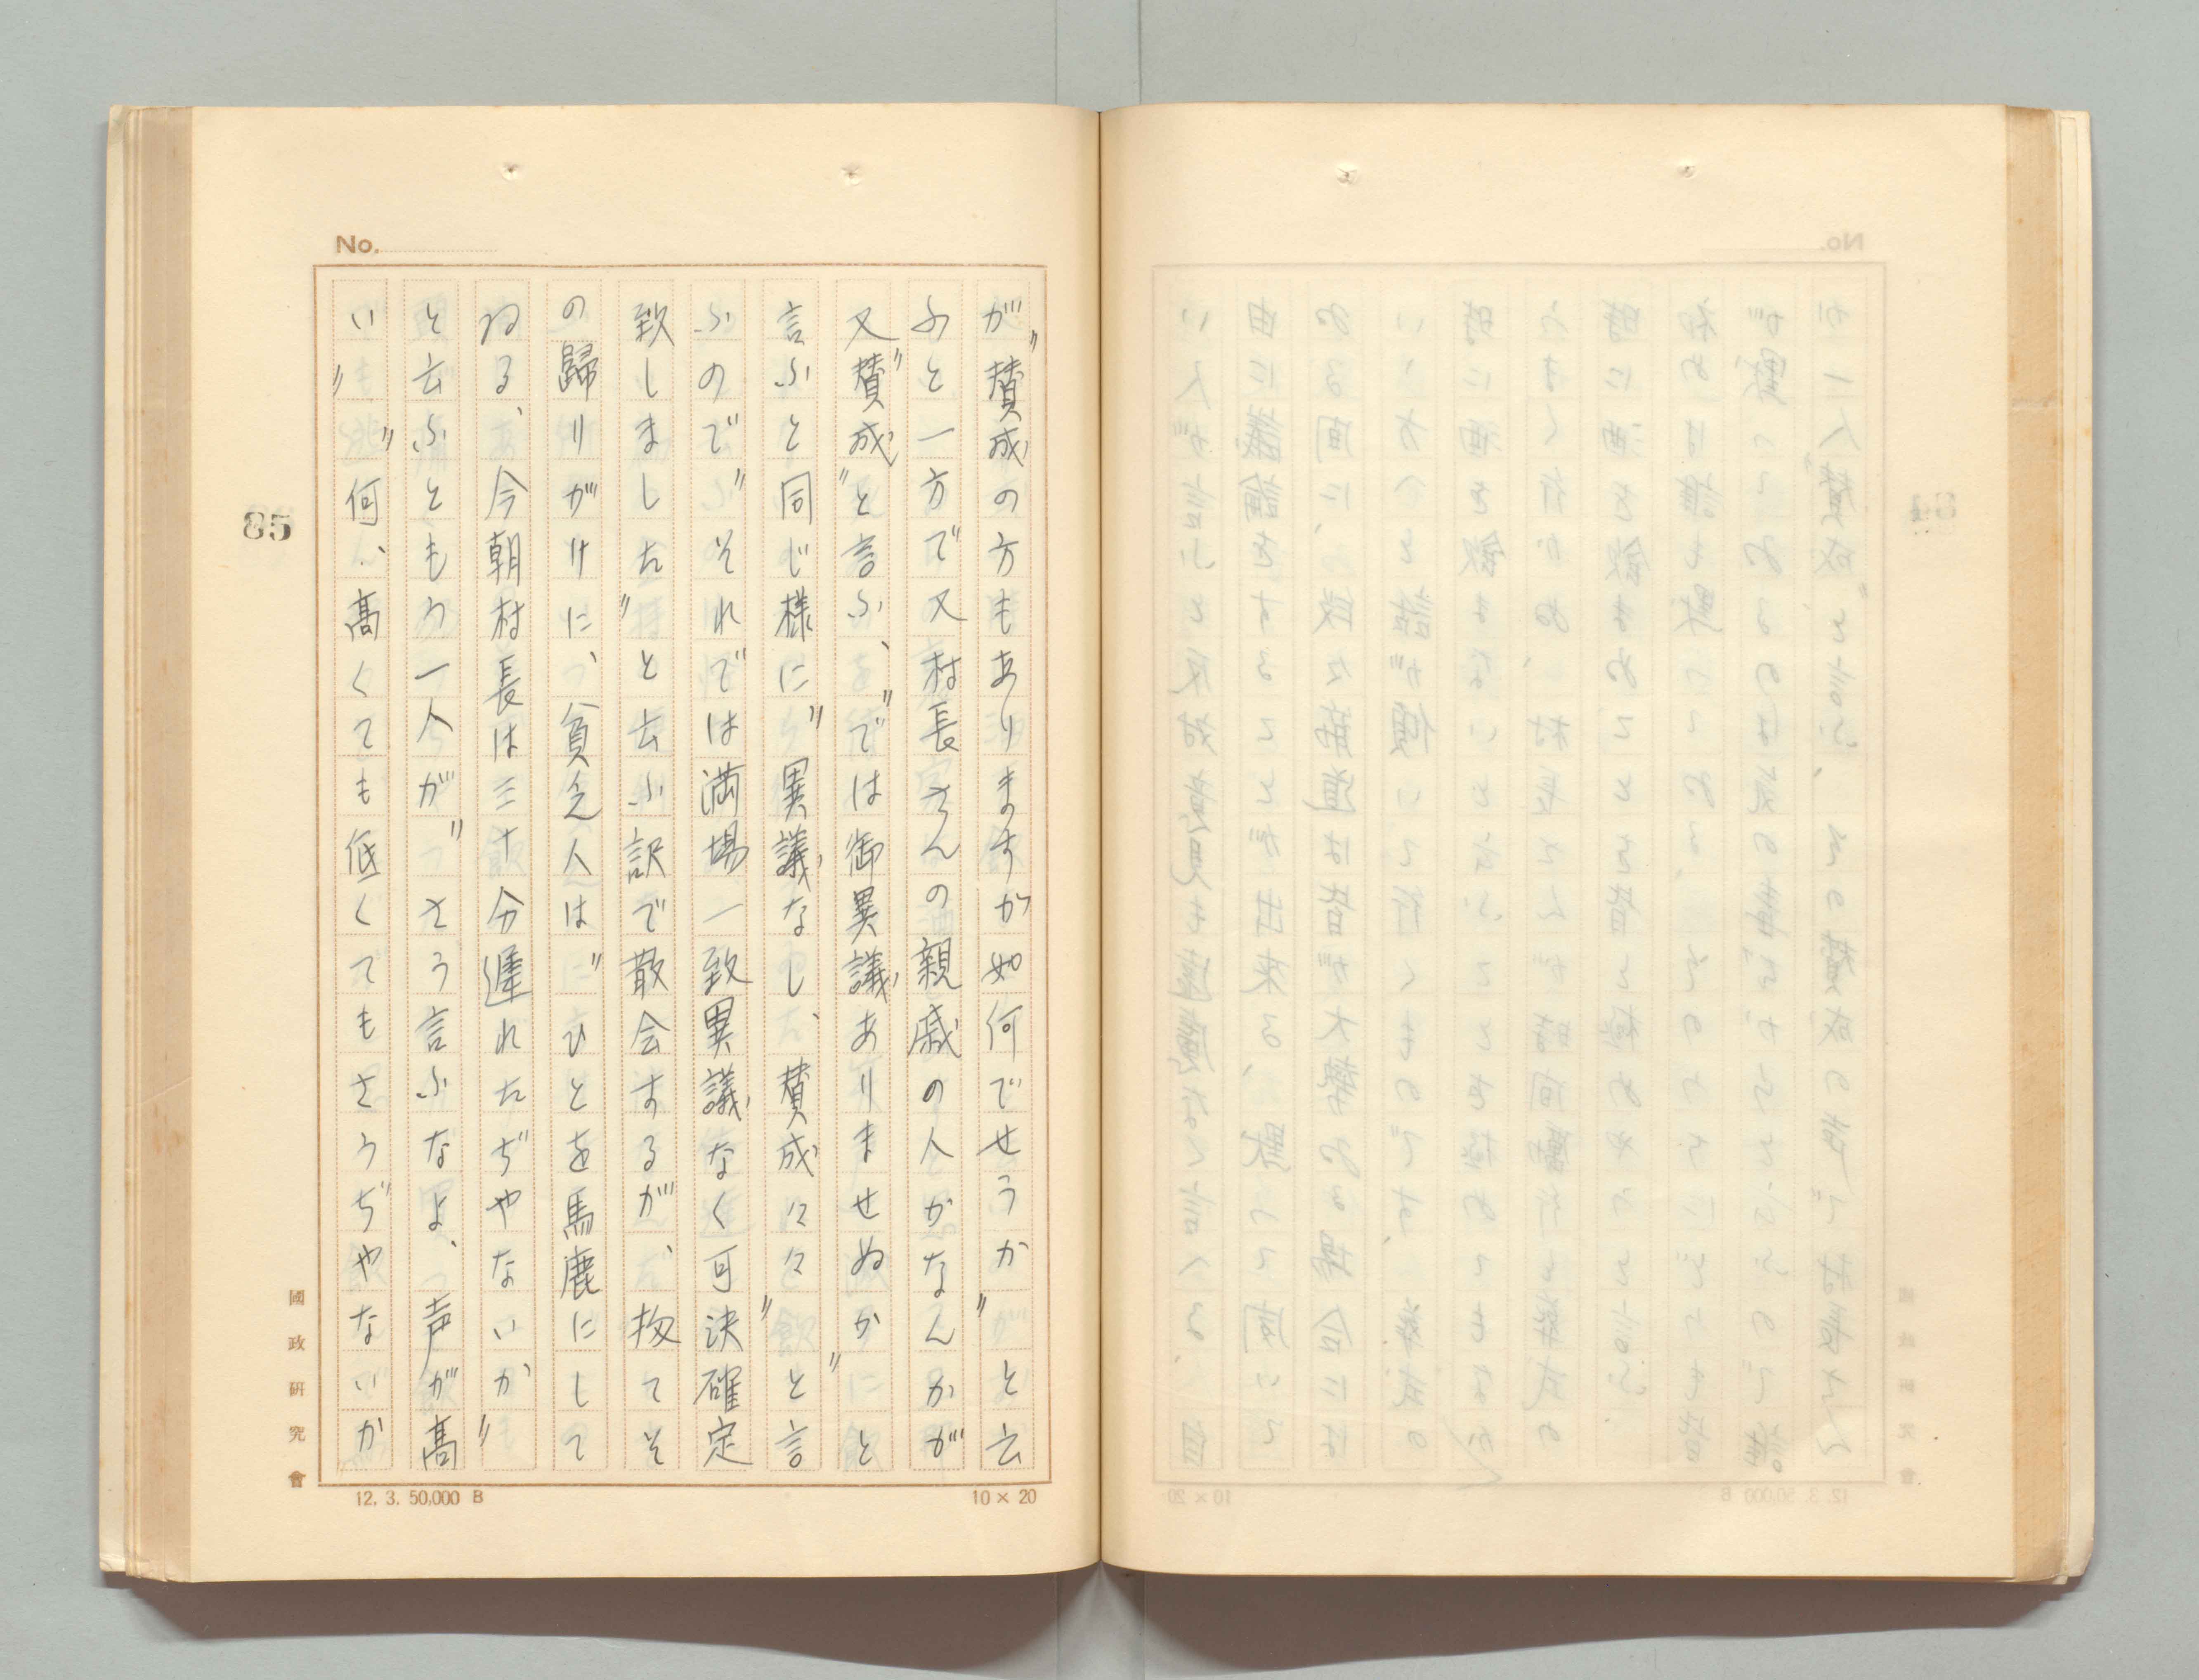 No.
が〝賛成の方もありますが如何でせうか〟と云
ふと一方で又村長さんの親戚の人かなんかが
又〝賛成〟と言ふ、〝では御異議ありませぬか〟と
言ふと同じ様に〝異議なし、賛成々々〟と言
ふので〝それでは満場一致異議なく可決確定
致しました〟と云ふ訳で散会するが、扨てそ
の歸りがけに、貧乏人は〝ひとを馬鹿にして
ゐる、今朝村長は三十分遅れたぢやないか〟
と云ふともう一人が〝さう言ふなよ、声が髙
い〟〝何、髙くても低くてもさうぢやないか
85
國政研究會
12. 3. 50,000 B
10 × 20